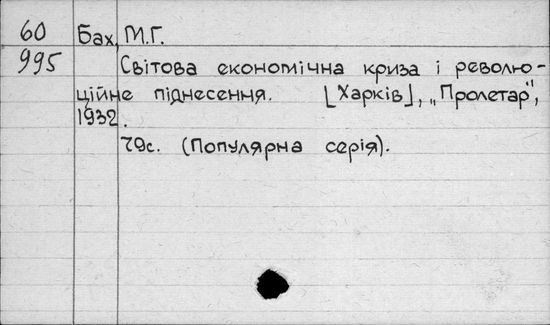 60 Бах, М.Г.
995 Світова економічна криза і револю-
ційне піднесення. ⌊Харків⌋, „Пролетар",
1932.
79с. (Популярна серія).